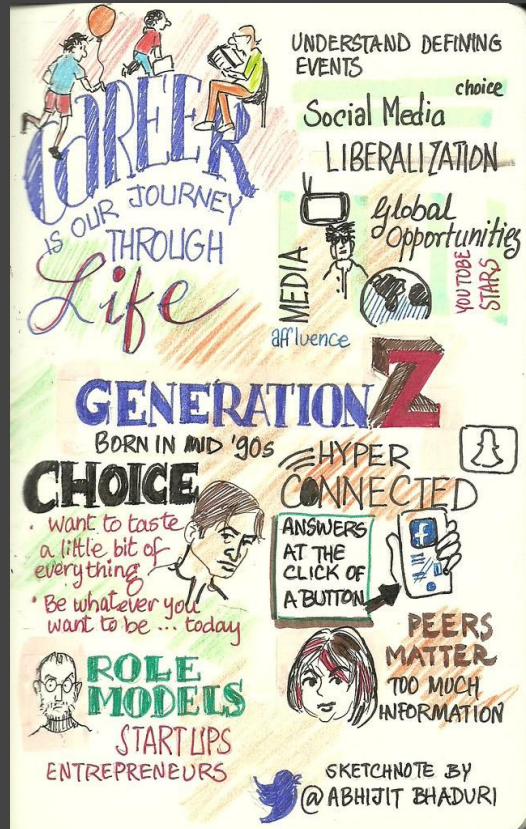 CAREER
IS OUR JOURNEY
THROUGH
Life
UNDERSTAND DEFINING
EVENTS
choice
Social Media
LIBERALIZATION
Global
Opportunities
MEDIA
YOUTOBE
STARS
affluence
GENERATION Z
BORN IN MID '90s
CHOICE
• want to taste
a little bit of
everything
• Be whatever you
want to be ... today
HYPER
CONNECTED
ANSWERS
AT THE
CLICK OF
A BUTTON
f
ROLE
MODELS
START UPS
ENTREPRENEURS
PEERS
MATTER
TOO MUCH
INFORMATION
SKETCHNOTE BY
@ABHIJIT BHADURI